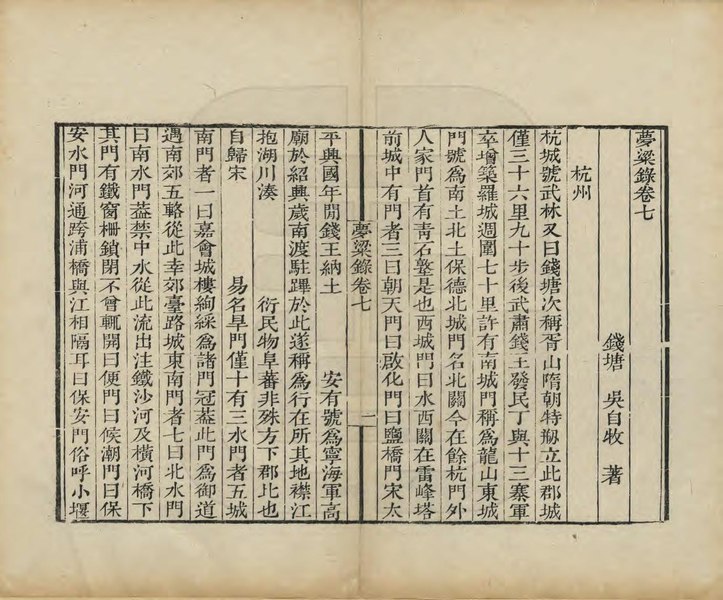 夢粱錄卷七
錢塘　吳自牧　著
杭州
杭城號武林又曰錢塘次稱胥山隋朝特剏立此郡城
僅三十六里九十步後武肅錢王發民丁與十三寨軍
卒增築羅城週圍七十里許有南城門稱爲龍山東城
門號爲南土北土保德北城門名北關今在餘杭門外
人家門首有靑石墪是也西城門曰水西關在雷峰塔
前城中有門者三曰朝天門曰啟化門曰鹽橋門宋太
夢粱錄卷七
一
平興國年閒錢王納土　安有號爲寧海軍高
廟於紹興歲南渡駐蹕於此遂稱爲行在所其地襟江
抱湖川湊　衍民物阜蕃非殊方下郡比也
自歸宋　易名旱門僅十有三水門者五城
南門者一曰嘉會城樓絢綵爲諸門冠葢此門爲御道
遇南郊五輅從此幸郊臺路城東南門者七曰北水門
曰南水門葢禁中水從此流出注鐵沙河及橫河橋下
其門有鐵窗柵鎖閉不曾輒開曰便門曰候潮門曰保
安水門河通跨浦橋與江相隔耳曰保安門俗呼小堰